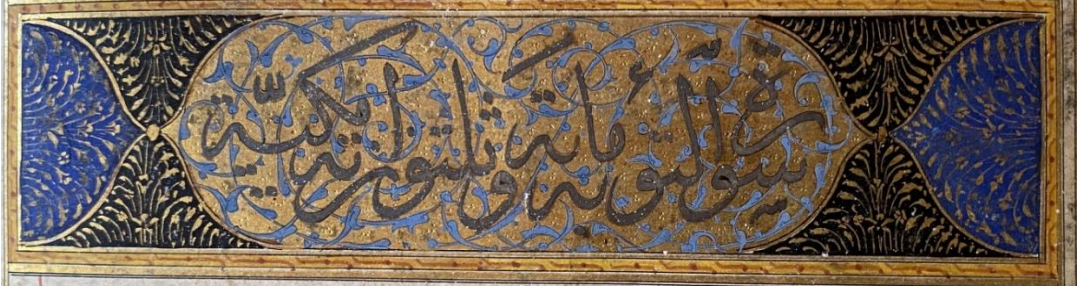 سورة التوبة مائة وثلثون اية مكية